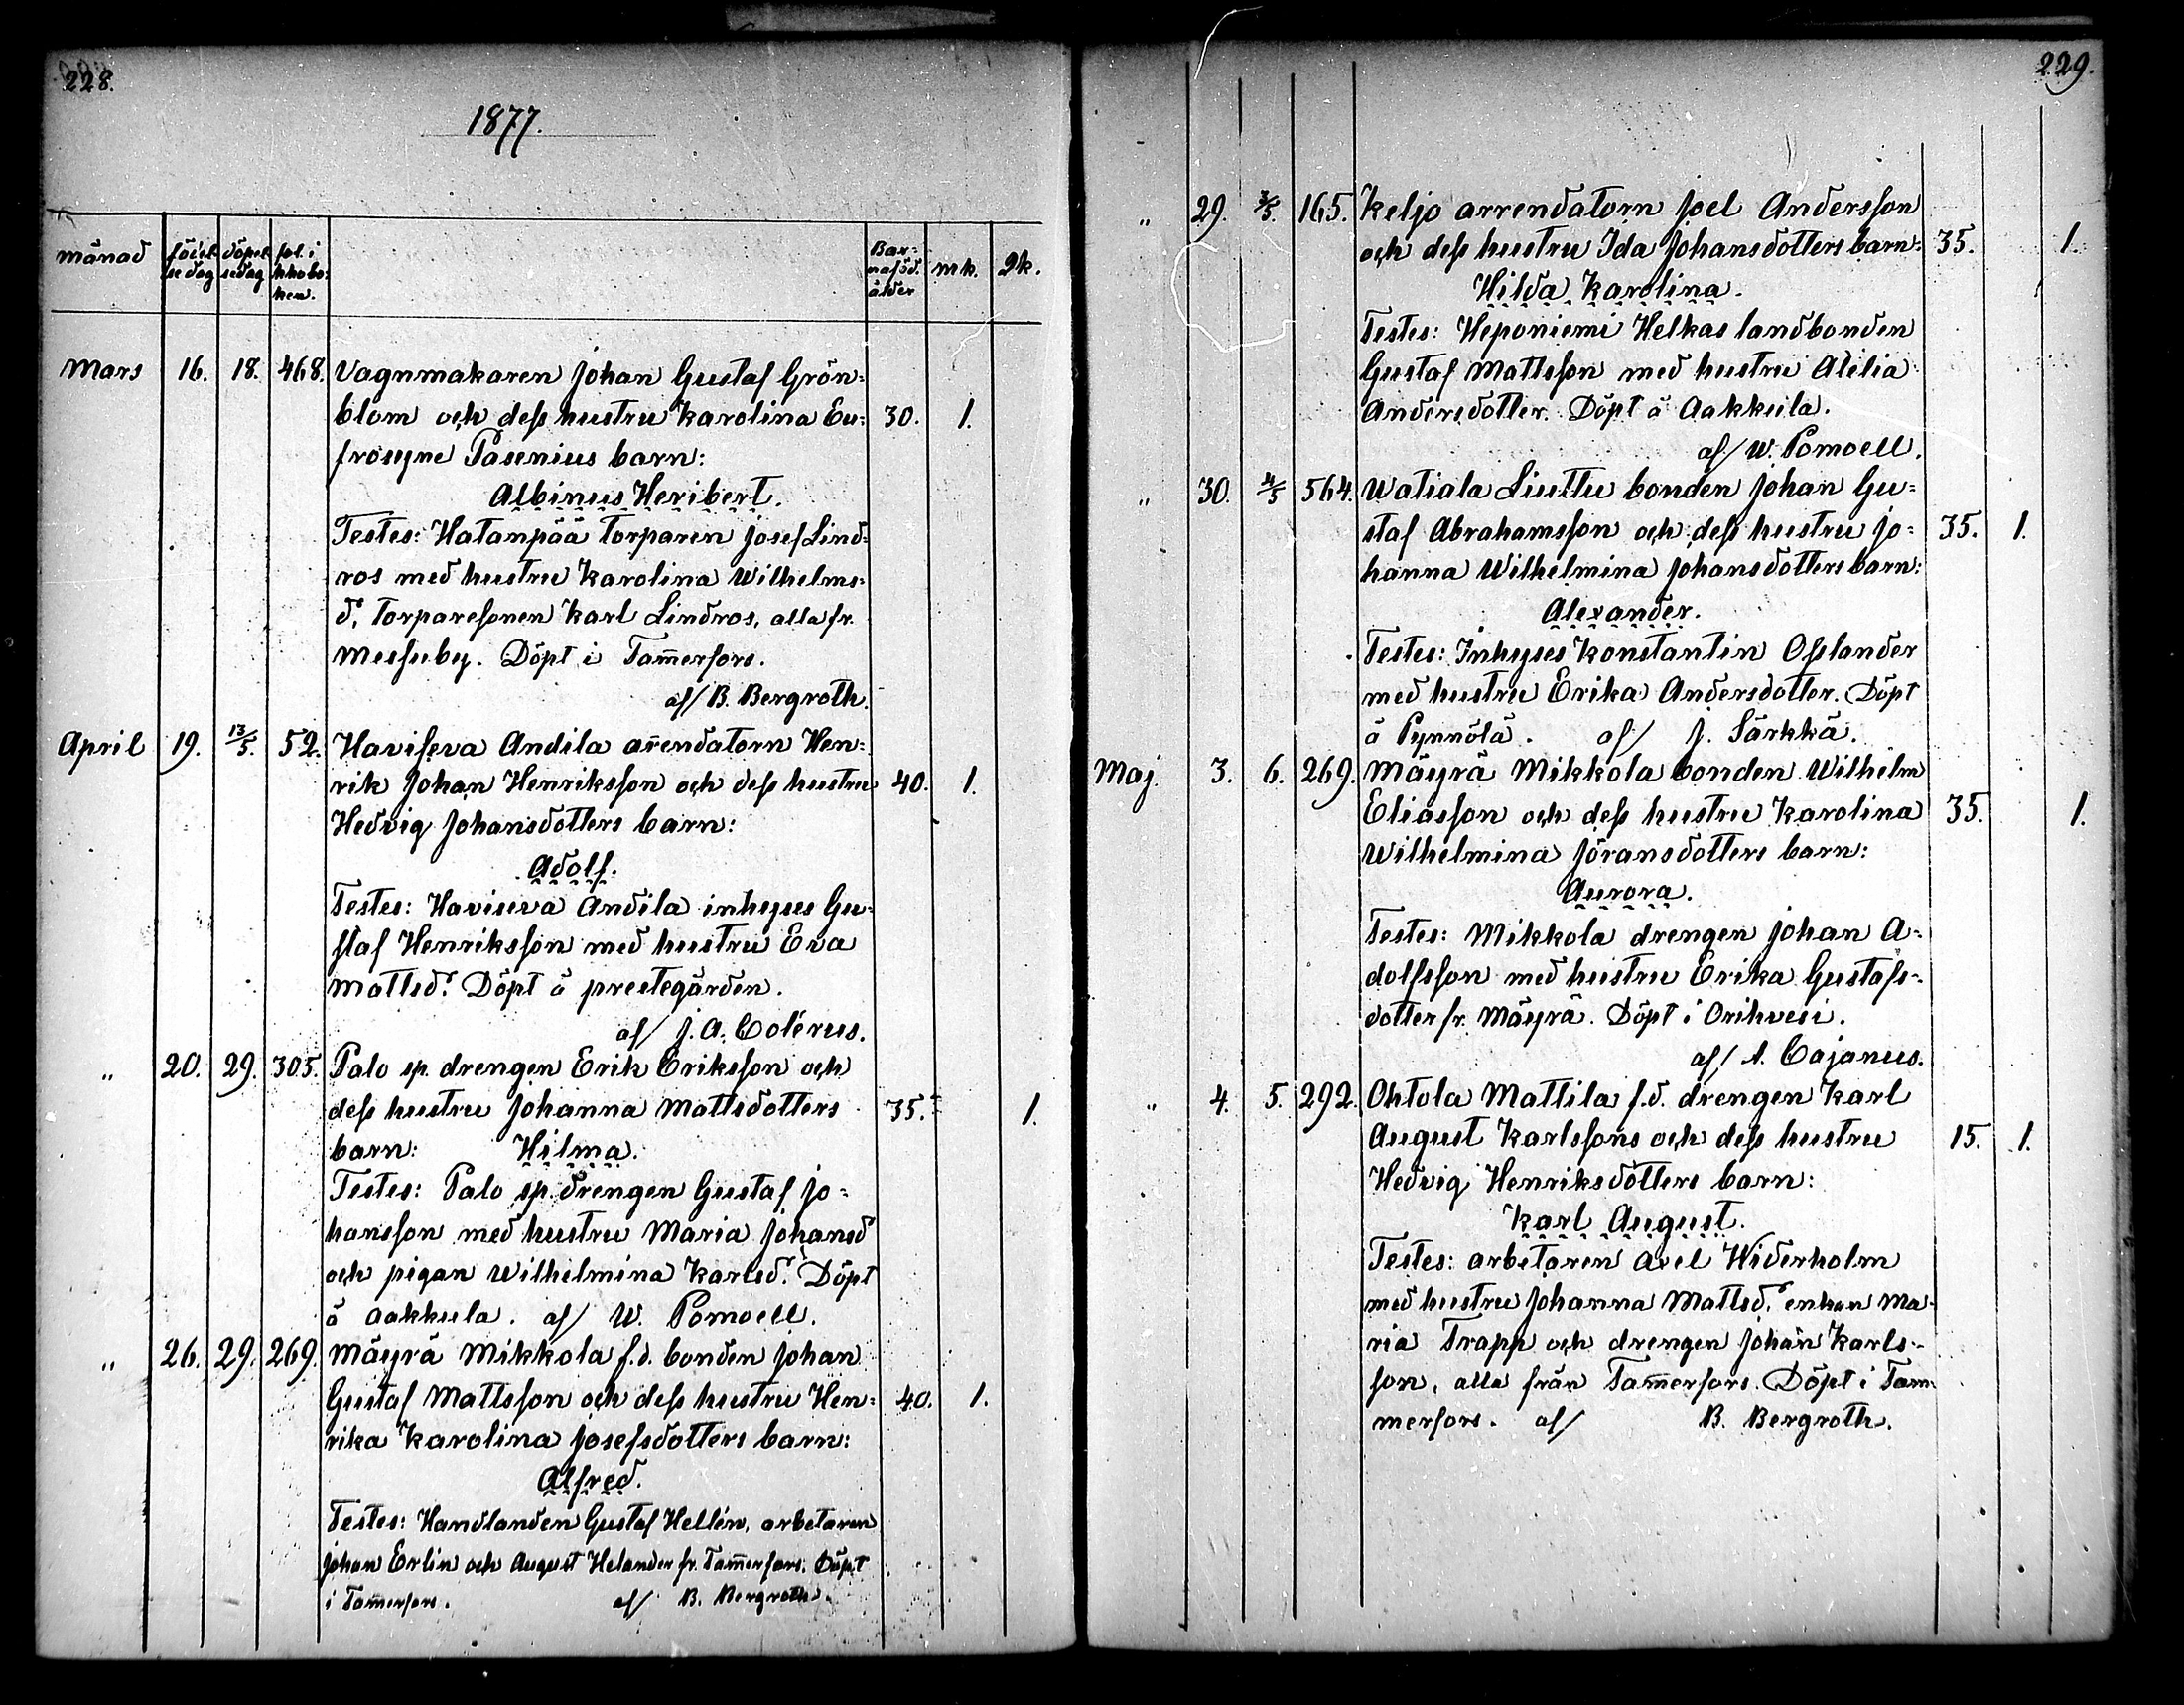 228.
1877.
månad födel- döpel- fol. i Bar- mk. qk.
se dag sedag kkobo- naföd.
ken. ålder
Mars 16. 18. 468. Vagnmakaren Johan Gustaf Grön-
blom och dess hustru Karolina Eu- 30. 1.
frosyne Pasenius barn:
Albinus Heribert.
Testes: Hatanpää torparen Josef Lind-
ros med hustru Karolina Wilhelms-
d:r, torparesonen Karl Lindros, alla fr.
Messuby. Döpt i Tam̄erfors.
af/ B. Bergroth.
April 19. 13/5. 52. Haviseva Andila ar̄endatorn Hen-
rik Johan Henriksson och dess hustru 40. 1.
Hedvig Johansdotters barn:
Adolf.
Testes: Haviseva Andila inhyses Gu-
staf Henriksson med hustru Eva
Mattsd:r Döpt å prestegården.
af/ J. A. Colérus.
" 20. 29. 305. Palo sp. drengen Erik Eriksson och
dess hustru Johanna Mattsdotters 35. 1.
barn: Hilma.
Testes: Palo sp. drengen Gustaf Jo-
hansson med hustru Maria Johansd
och pigan Wilhelmina Karlsd:r Döpt
å Aakkula. af/ W. Pomoell.
" 26. 29. 269. Mäyrä Mikkola f.d. bonden Johan
Gustaf Mattsson och dess hustru Hen- 40. 1.
rika Karolina Josefsdotters barn:
Alfred.
Testes: Handlanden Gustaf Hellén, arbetaren
Johan Erlin och August Helander fr. Tam̄erfors. Döpt
i Tam̄erfors. af/ B. Bergroth.
229.
" 29. 3/5. 165. Keljo arrendatorn Joel Andersson
och dess hustru Ida Johansdotters barn: 35. 1.
Hilda Karolina.
Testes: Heponiemi Helkas landbonden
Gustaf Mattsson med hustru Atilia
Andersdotter. Döpt å Aakkula.
af/ W. Pomoell.
" 30. 4/5 564. Watiala Liuttu bonden Johan Gu-
staf Abrahamsson och dess hustru Jo- 35. 1.
hanna Wilhelmina Johansdotters barn:
Alexander.
Testes: Inhyses Konstantin Osslander
med hustru Erika Andersdotter. Döpt
å Pynnölä. af/ J. Särkkä.
Maj. 3. 6. 269. Mäyrä Mikkola bonden Wilhelm
Eliasson och dess hustru Karolina 35. 1.
Wilhelmina Jöransdotters barn:
Aurora.
Testes: Mikkola drengen Johan A-
dolfsson med hustru Erika Gustafs-
dotter fr. Mäyrä. Döpt i Orihvesi.
af/ A. Cajanus.
" 4. 5. 292. Ohtola Mattila f.d. drengen Karl
August Karlssons och dess hustru 15. 1.
Hedvig Henriksdotters barn:
Karl August.
Testes: arbetaren Axel Widerholm
med hustru Johanna Mattsd:r enkan Ma-
ria Trapp och drengen Johan Karls-
son, alla från Tam̄erfors. Döpt i Tam-
merfors. af/ B. Bergroth.